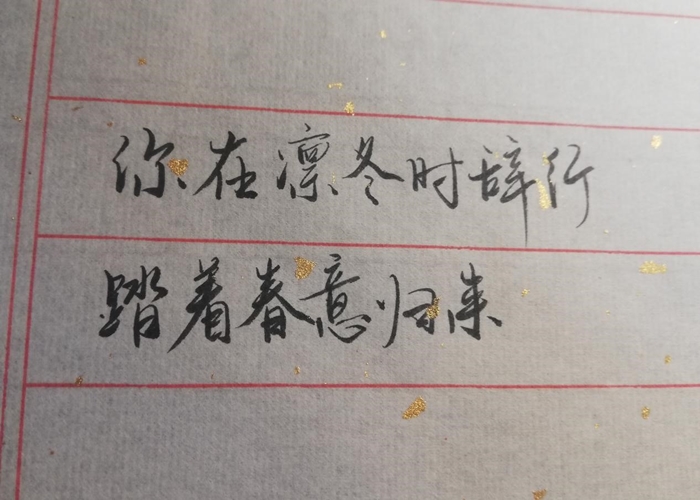 你在凛冬时辞行
踏着春意归来